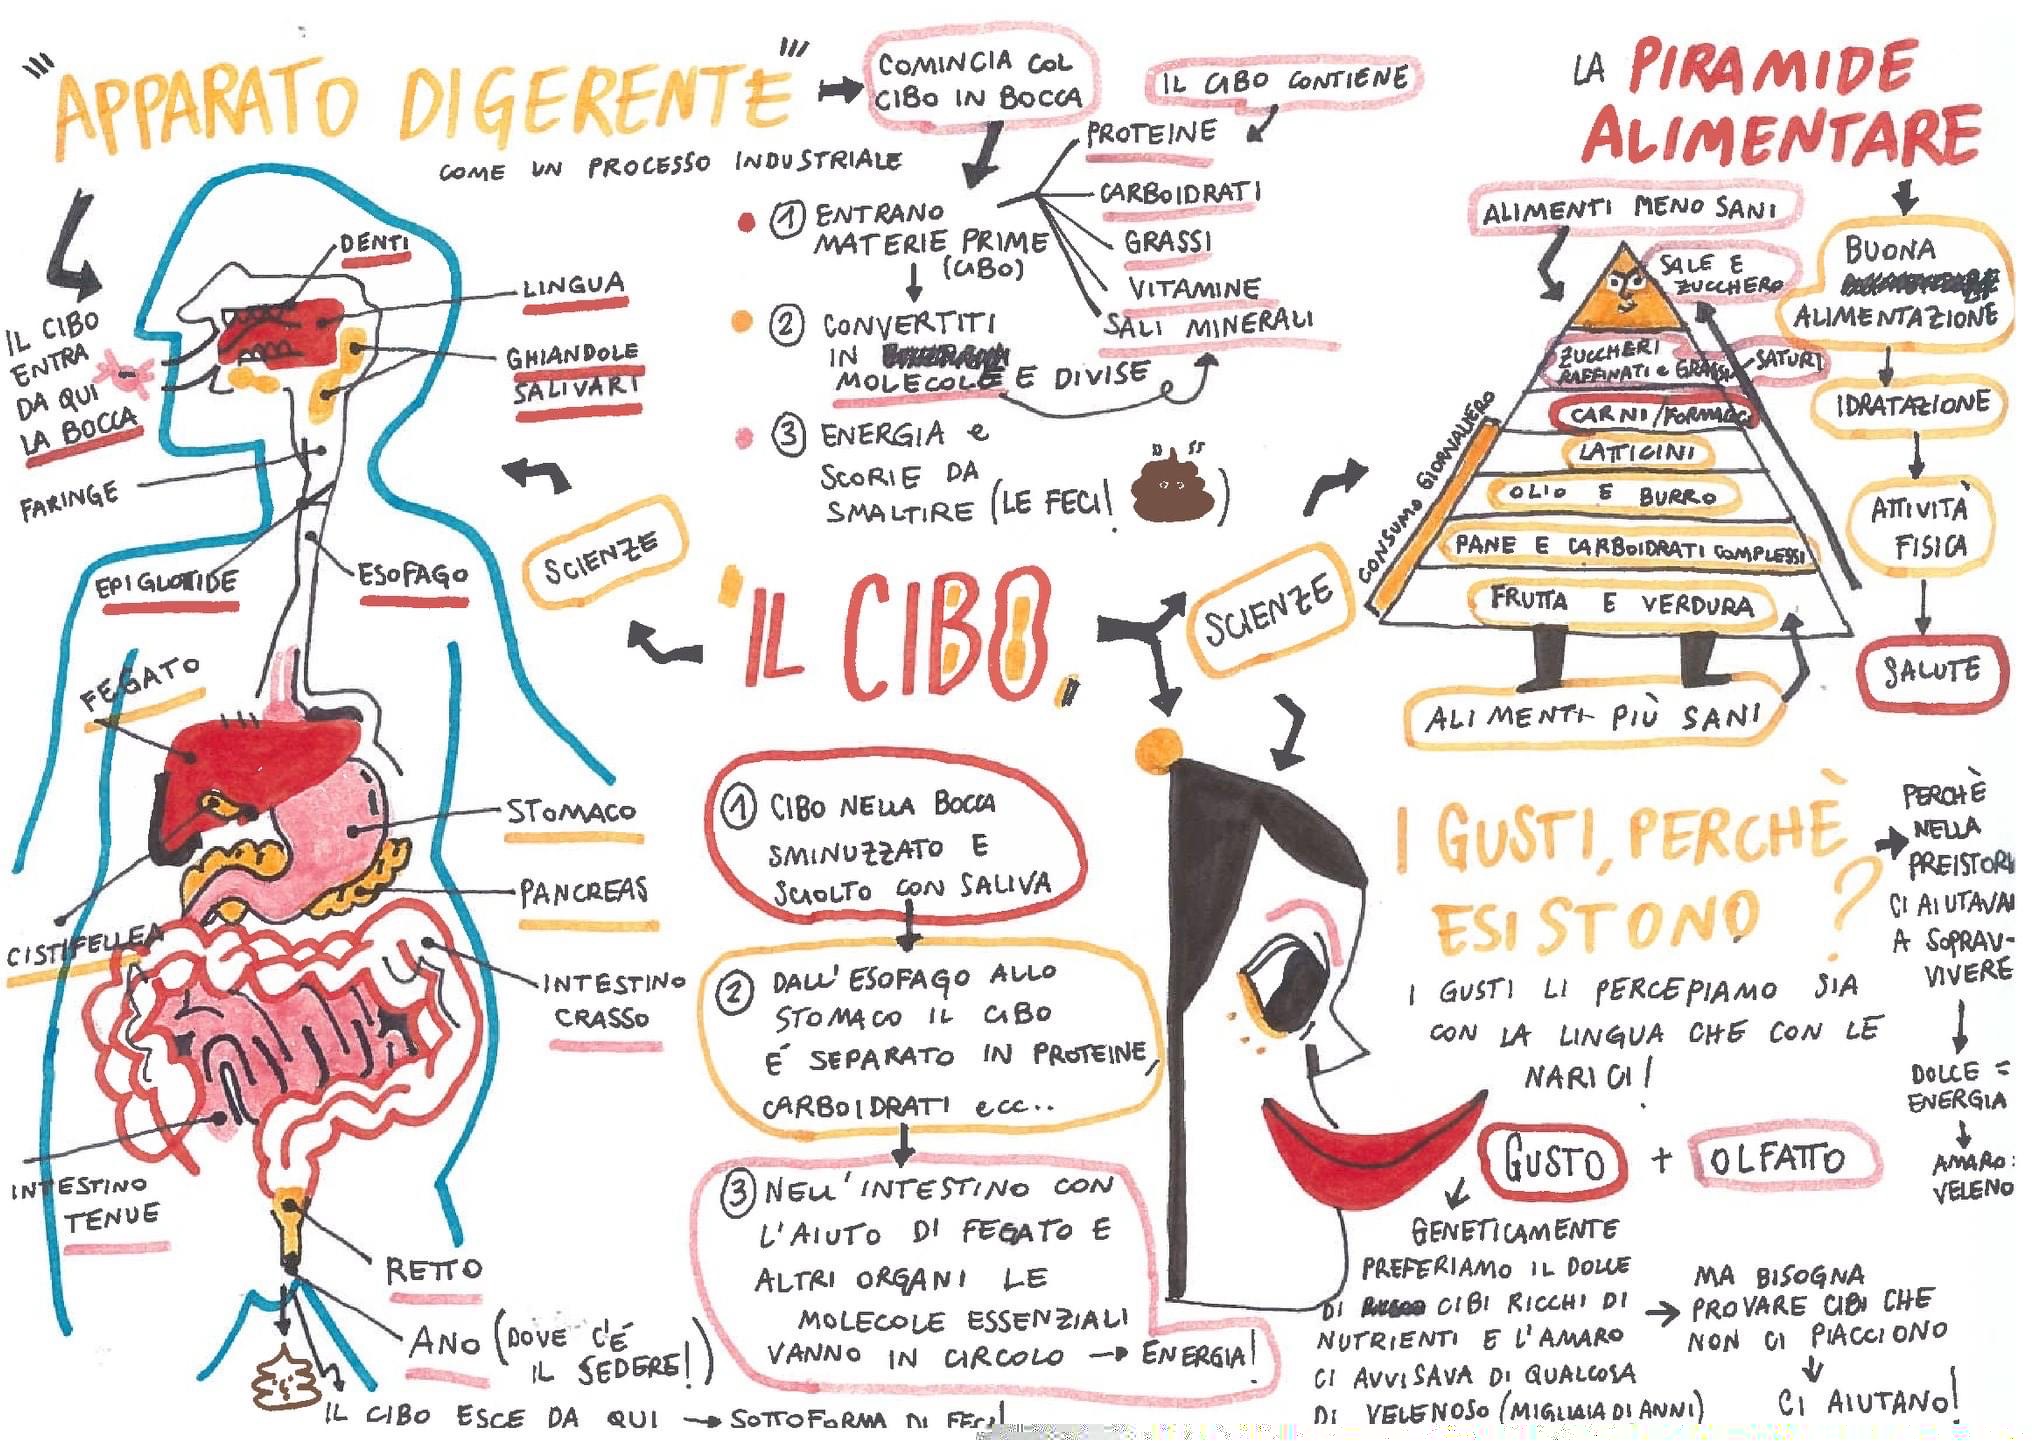 "APPARATO DIGERENTE"
COME UN PROCESSO INDUSTRIALE
COMINCIA COL
CIBO IN BOCCA
IL CIBO CONTIENE
PROTEINE
CARBOIDRATI
GRASSI
VITAMINE
SALI MINERALI
① ENTRANO
MATERIE PRIME
(CIBO)
② CONVERTITI
IN
MOLECOLE E DIVISE
③ ENERGIA e
SCORIE DA
SMALTIRE (LE FECI!)
IL CIBO
ENTRA
DA QUI
LA BOCCA
DENTI
LINGUA
GHIANDOLE
SALIVARI
FARINGE
EPIGLOTTIDE
ESOFAGO
FEGATO
STOMACO
PANCREAS
CISTIFELLEA
INTESTINO
CRASSO
INTESTINO
TENUE
RETTO
ANO (DOVE C'É
IL SEDERE!)
IL CIBO ESCE DA QUI → SOTTOFORMA DI FECI!
SCIENZE
"IL CIBO"
SCIENZE
① CIBO NELLA BOCCA
SMINUZZATO E
SCIOLTO CON SALIVA
② DALL'ESOFAGO ALLO
STOMACO IL CIBO
É SEPARATO IN PROTEINE,
CARBOIDRATI ecc..
③ NELL'INTESTINO CON
L'AIUTO DI FEGATO E
ALTRI ORGANI LE
MOLECOLE ESSENZIALI
VANNO IN CIRCOLO → ENERGIA!
LA PIRAMIDE
ALIMENTARE
ALIMENTI MENO SANI
SALE E
ZUCCHERO
ZUCCHERI
RAFFINATI e GRASSI SATURI
CARNI/FORMAGGI
LATTICINI
OLIO E BURRO
PANE E CARBOIDRATI COMPLESSI
FRUTTA E VERDURA
CONSUMO GIORNALIERO
ALIMENTI PIÙ SANI
BUONA
ALIMENTAZIONE
IDRATAZIONE
ATTIVITÀ
FISICA
SALUTE
I GUSTI, PERCHÈ
ESISTONO ?
I GUSTI LI PERCEPIAMO SIA
CON LA LINGUA CHE CON LE
NARICI!
GUSTO + OLFATTO
GENETICAMENTE
PREFERIAMO IL DOLCE
DI CIBI RICCHI DI
NUTRIENTI E L'AMARO
CI AVVISAVA DI QUALCOSA
DI VELENOSO (MIGLIAIA DI ANNI)
MA BISOGNA
PROVARE CIBI CHE
NON CI PIACCIONO
CI AIUTANO!
PERCHÈ
NELLA
PREISTORI
CI AIUTAVA
A SOPRAV-
VIVERE
DOLCE =
ENERGIA
AMARO:
VELENO